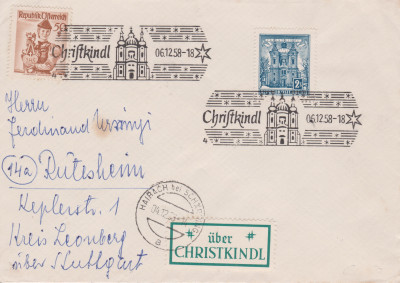 Republik Österreich
50
Christkindl
06.12.58-18
2
Christkindl
06.12.58-18
4
Herrn
Ferdinand
14a Rutesheim
Keplerstr. 1
Kreis Leonberg
über Stuttgart
HAIBACH bei
a
über
CHRISTKINDL